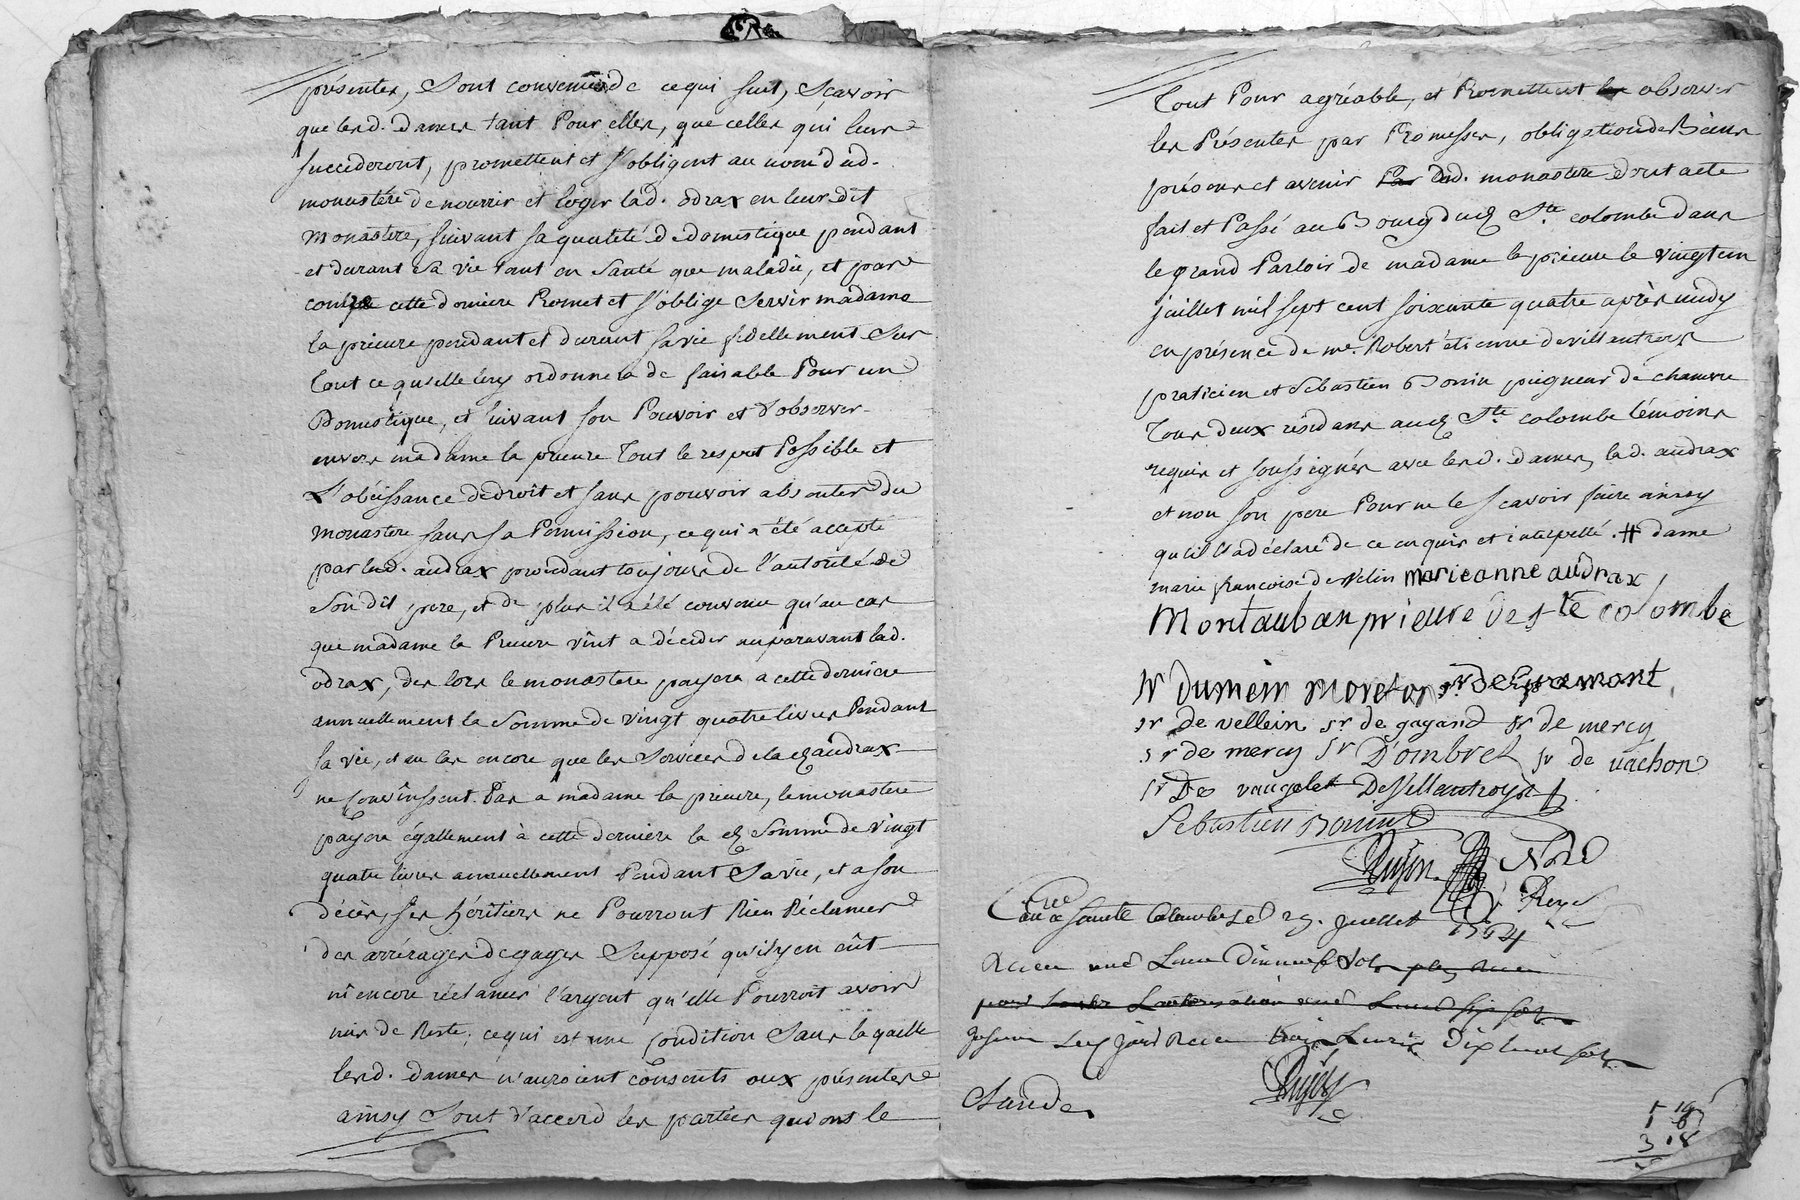 présentes, sont convenües de ce qui suit, sçavoir
que lesd. dames tant pour elles, que celles qui leurs
succederont, promettent et s'obligent au nom dud.
monastére de nourrir et loger lad. odrax en leur dit
monastére, suivant sa qualité de domestique pendant
et durant sa vie tant en santé que maladie, et par
contre cette derniere promet et s'oblige servir madame
la prieure pendant et durant sa vie fidellement sur
tout ce qu'elle luy ordonnera de faisable pour une
domestique, et suivant son pouvoir et d'observer
envers madame la prieure tout le respect possible et
l'obéissance de droit et sans pouvoir absenter du
monastere sans sa permission, ce qui a été accepté
par lad. audrax procédant toujours de l'autorité de
son dit pere, et de plus il a été convenu qu'au cas
que madame la prieure vint a décéder auparavant lad.
odrax, des lors le monastere payera a cette derniere
annuellement la somme de vingt quatre livres pendant
sa vie, et au cas encore que les services de lad. audrax
ne convinssent pas a madame la prieure, le monastere
payera égallement à cette derniere la d. somme de vingt
quatre livres annuellement pendant sa vie, et a son
décès, ses héritiers ne pourront rien réclamer
des arrérages de gages supposé qu'il y en eût
ni encore réclamer l'argent qu'elle pourroit avoir
mis de reste, ce qui est une condition sans laquelle
lesd. dames n'auroient consenti aux présentes
ainsy sont d'accord les parties qui ont le
tout pour agréable, et promettent les observer
les présentes par promesses, obligation de biens
présens et avenir par dud. monastere dont acte
fait et passé au bourg dud. Ste. colombe dans
le grand parloir de madame la prieure le vingt un
juillet mil sept cent soixante quatre après midy
en présence de me. Robert étienne devillentroys
praticien et sebastien Bonin peigneur de chanvre
tous deux résidans aud. Ste. colombe témoins
requis et soussignés avec lesd. dames, lad. audrax
et non son pere pour ne le scavoir faire ainsy
qu'il l'a déclaré de ce enquis et interpellé. # dame
marie françoise de vellin marieanne audrax
Montauban prieure de ste colombe
sr dumein moreton sr. de
sr de vellein sr. de gayand sr de mercy
sr de mercy sr D'ombret sr de vachon
sr De vaugelet Devillantroys
Sebastien Bonin
Nore
Roy
a sainte Colombe le 29. juillet
1764
Receu une Livre Dixneuf sols plus Receu
pour Lautorisation une Livre six sols
Receu trois Livres Dix huit sols
1 19
3 18